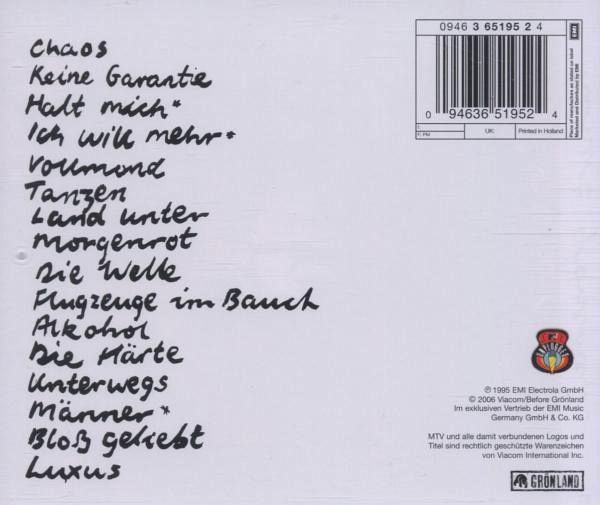 Chaos
Keine Garantie
Halt mich*
Ich will mehr*
Vollmond
Tanzen
Land unter
Morgenrot
Die Welle
Flugzeuge im Bauch
Alkohol
Die Härte
Unterwegs
Männer*
Bloß geliebt
Luxus
0946 3 65195 2 4
0 94636 51952 4
F: PM
UK:
Printed in Holland
Place of manufacture as stated on label
Marketed and Distributed by EMI
EMI
UNPLUGGED
℗ 1995 EMI Electrola GmbH
© 2006 Viacom/Before Grönland
Im exklusiven Vertrieb der EMI Music
Germany GmbH & Co. KG
MTV und alle damit verbundenen Logos und
Titel sind rechtlich geschützte Warenzeichen
von Viacom International Inc.
GRÖNLAND